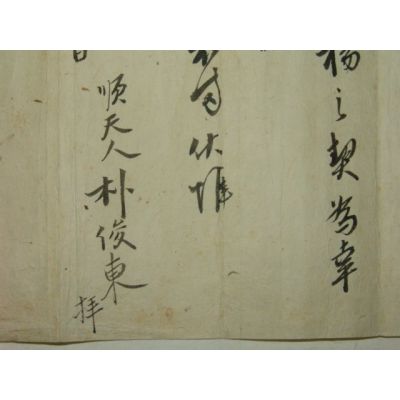 楊之契為幸
伏惟
日
順天人朴俊東
拜